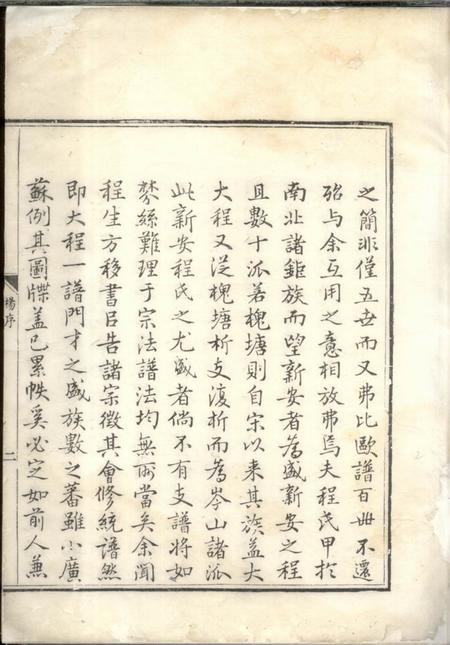 之簡非僅五世而又弗比歐譜百世不還
弨与余互用之意相放弗焉夫程氏甲於
南北諸鉅族而望新安者為盛新安之程
且數十派若槐塘則自宋以来其族益大
大程又從槐塘析支復析而為岑山諸派
此新安程氏之尤盛者倘不有支譜將如
棼絲難理于宗法譜法均無所當矣余聞
程生方移書吕告諸宗徴其會修統譜然
即大程一譜門才之盛族數之蕃雖小廣
蘇例其圖牒盖已累帙奚必定如前人兼
楊序
二